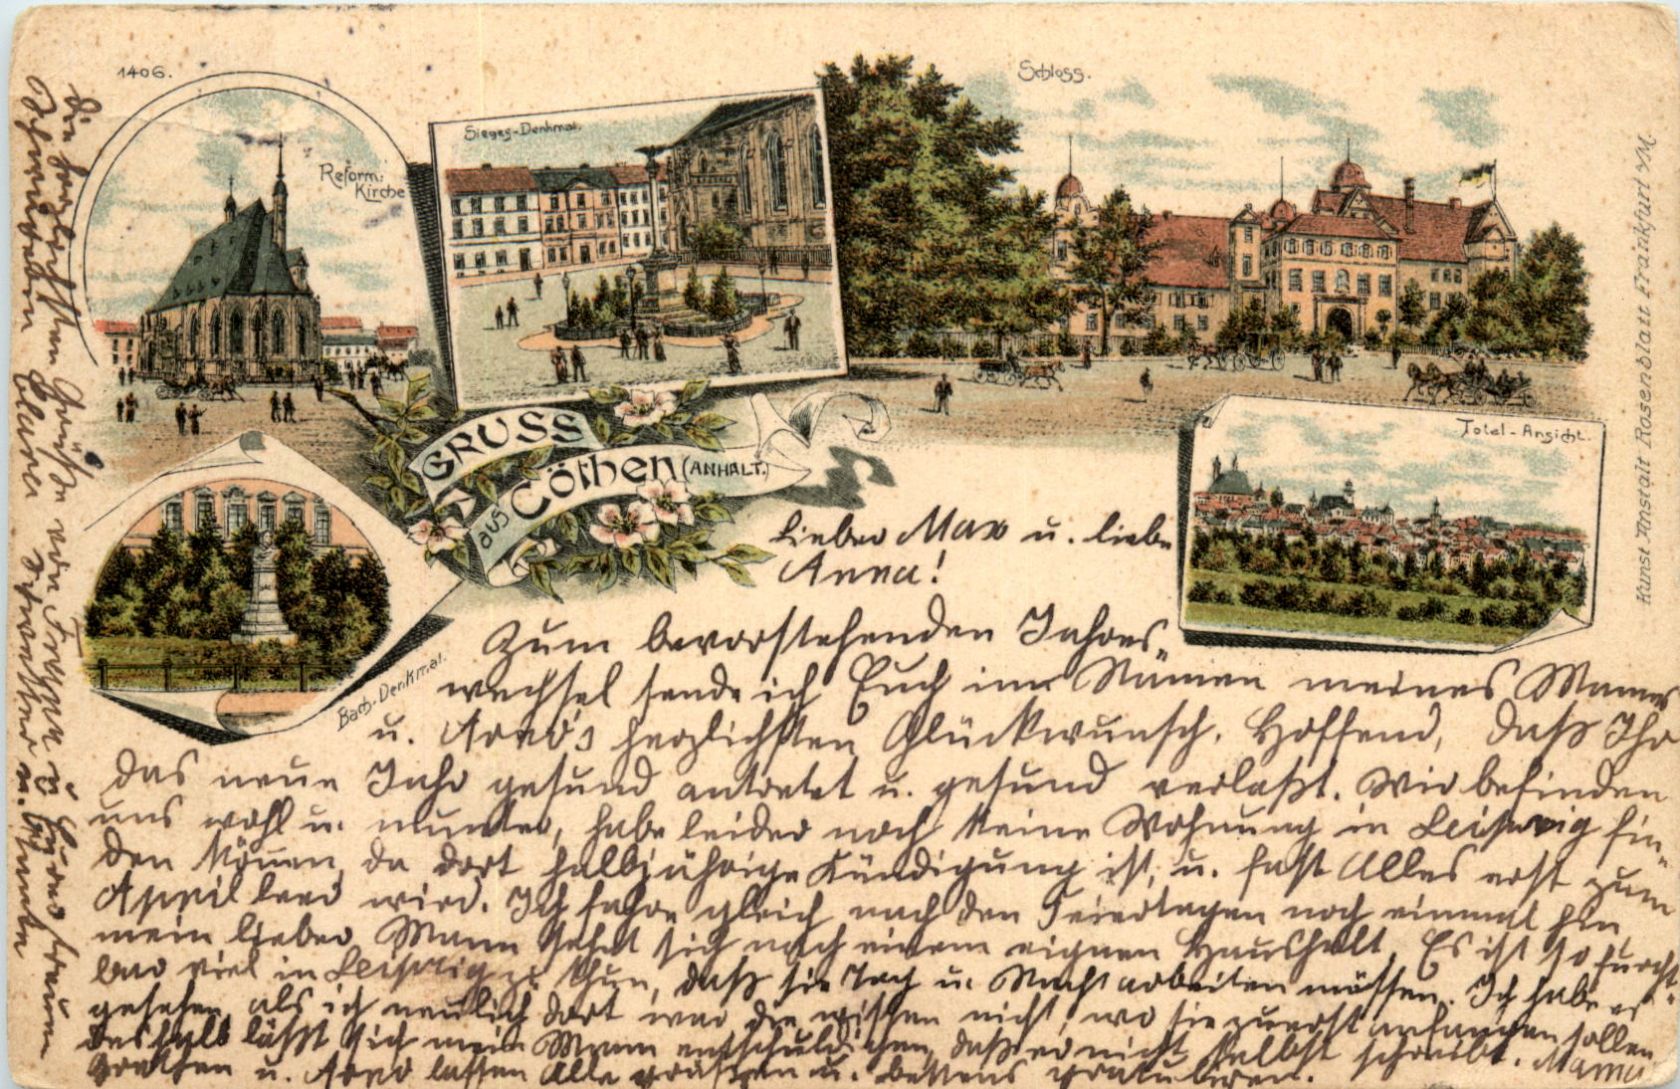 1406.
Reform.
Kirche
Sieges-Denkmal.
Schloss.
Total-Ansicht.
Bach-Denkmal.
GRUSS
aus Cöthen (ANHALT.)
Kunst Anstalt Rosenblatt Frankfurt a/M.
Lieber Max u. liebe
Anna!
Zum bevorstehenden Jahres-
wechsel sende ich Euch im Namen meines Mannes
u. Arno's herzlichsten Glückwunsch. Hoffend, daß Ihr
das neue Jahr gesund antretet u. gesund verlaßt. Wir befinden
uns wohl u. munter, habe leider noch keine Wohnung in Leipzig fin-
den können, da dort halbjährige Kündigung ist, u. fast Alles erst zum
April leer wird. Ich fahre gleich nach den Feiertagen noch einmal hin
mein lieber Mann sehnt sich nach einem eignen Haushalt. Es ist so furcht-
bar viel in Leipzig zu thun, daß sie Tag u. Nacht arbeiten müssen. Ich habe es
gesehen, als ich neulich dort war, die wissen nicht, wo sie zuerst anfangen sollen
deshalb läßt sich mein Mann entschuldigen, daß er nicht selbst schreibt. Mama
Grethen u. Arno lassen Alle grüßen u. bestens gratuliren.
Die herzlichsten Grüße von u. Eurer
Schwester